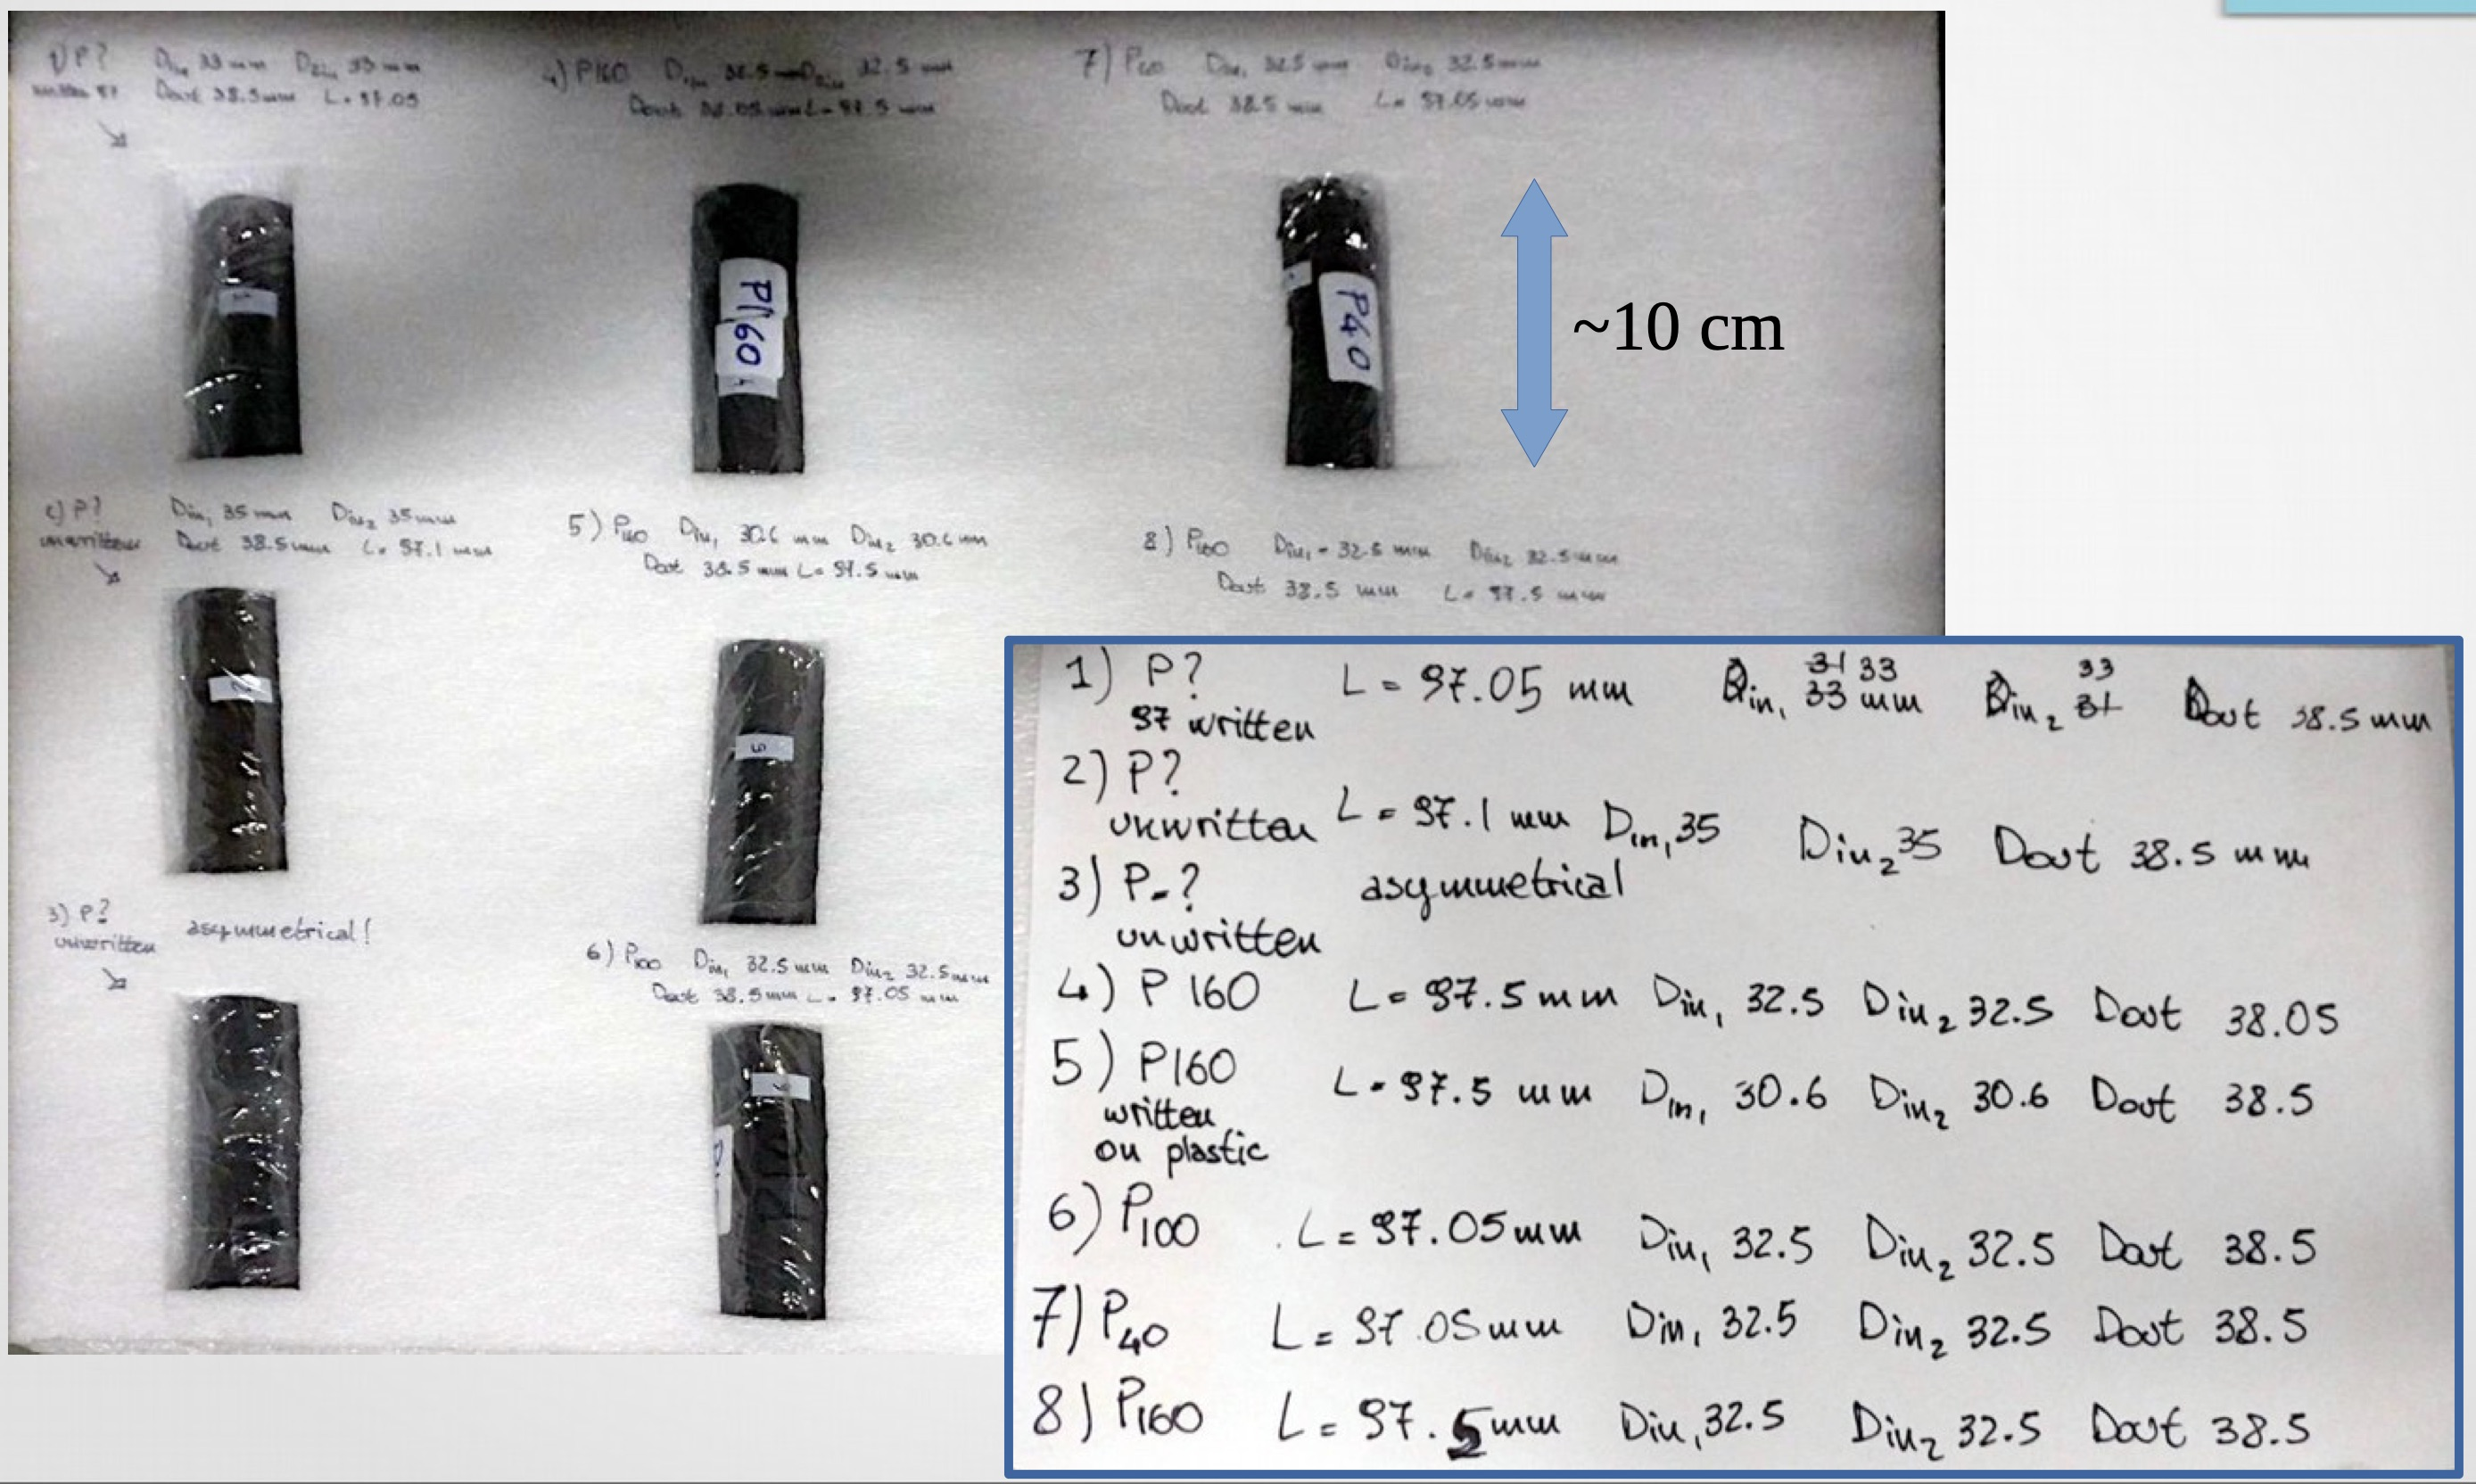 1) P? Din1 33 mm Din2 33 mm
written 97 Dout 38.5mm L= 97.05
4) P160 Din1 32.5 mm Din2 32.5 mm
Dout 38.05 mm L= 97.5 mm
7) P40 Din1 32.5 mm Din2 32.5mm
Dout 38.5 mm L= 97.05 mm
1
P160
4
P40
~10 cm
2) P? Din1 35 mm Din2 35mm
unwritten Dout 38.5mm L= 97.1 mm
5) P160 Din1 30.6 mm Din2 30.6 mm
Dout 38.5 mm L= 97.5 mm
8) P160 Din1 = 32.5 mm Din2 32.5mm
Dout 38.5 mm L= 97.5 mm
2
5
3) P? asymmetrical!
unwritten
6) P100 Din1 32.5mm Din2 32.5mm
Dout 38.5mm L= 97.05 mm
1) P? L = 97.05 mm Din1 31 33 33 mm Din2 31 33 Dout 38.5 mm
97 written
2) P?
unwritten L = 97.1 mm Din1 35 Din2 35 Dout 38.5 mm
3) P-? asymmetrical
unwritten
4) P 160 L = 97.5 mm Din1 32.5 Din2 32.5 Dout 38.05
5) P160 L = 97.5 mm Din1 30.6 Din2 30.6 Dout 38.5
written
on plastic
6) P100 L = 97.05mm Din1 32.5 Din2 32.5 Dout 38.5
7) P40 L = 97.05mm Din1 32.5 Din2 32.5 Dout 38.5
8) P160 L = 97.5mm Din1 32.5 Din2 32.5 Dout 38.5